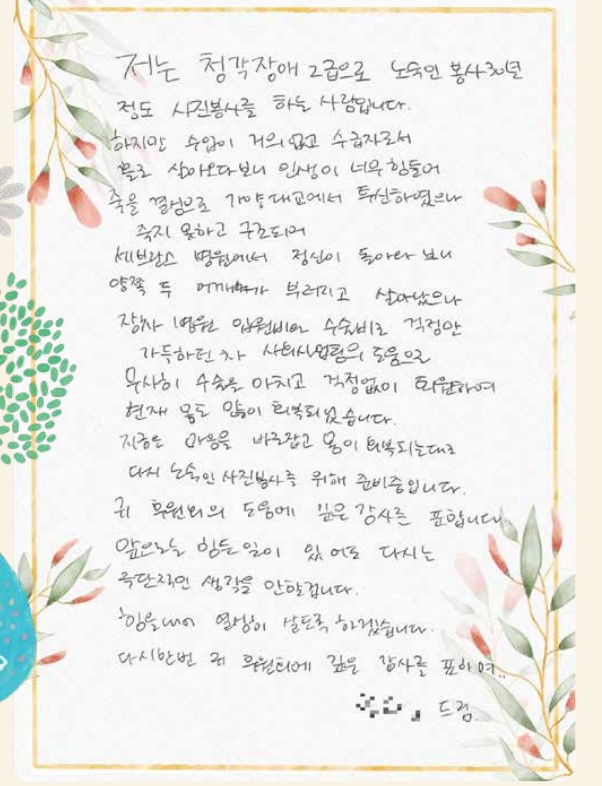 저는 청각장애 2급으로 노숙인 봉사 30년
정도 사진봉사를 하는 사람입니다.
하지만 수입이 거의 없고 수급자로서
홀로 살아오다보니 인생이 너무 힘들어
죽을 결심으로 가양대교에서 투신하였으나
죽지 못하고 구조되어
세브란스 병원에서 정신이 돌아와 보니
양쪽 두 어깨가 부러지고 살아났으나
장차 병원 입원비와 수술비로 걱정만
가득하던 차 사회사업팀의 도움으로
무사히 수술을 마치고 걱정없이 퇴원하여
현재 몸도 많이 회복되었습니다.
지금은 마음을 바로잡고 몸이 회복되는대로
다시 노숙인 사진봉사를 위해 준비중입니다.
귀 후원회의 도움에 깊은 감사를 표합니다
앞으로는 힘든일이 있어도 다시는
극단적인 생각을 안할겁니다.
힘을내어 열심히 살도록 하겠습니다.
다시한번 귀 후원회에 깊은 감사를 표하며..
드림.